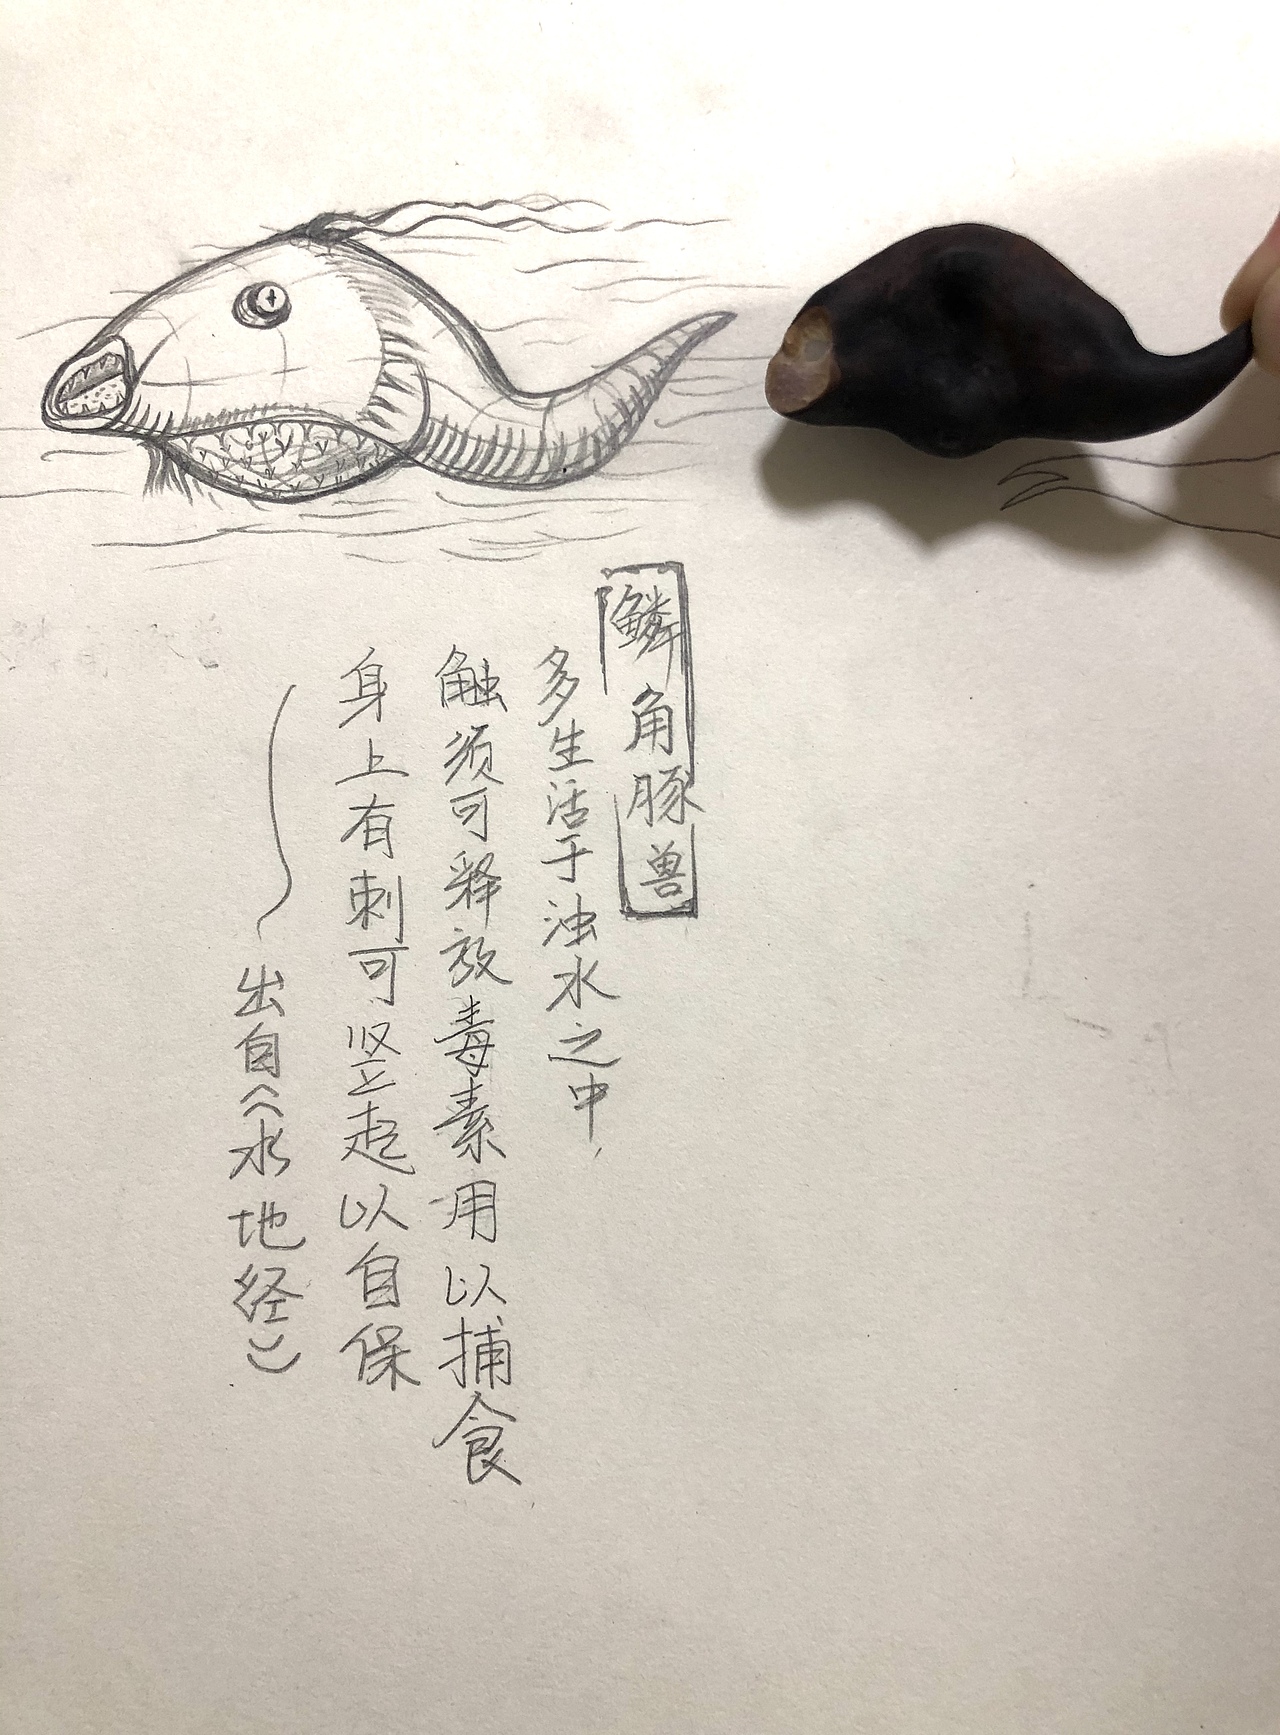 鳞角豚兽
多生活于浊水之中,
触须可释放毒素用以捕食
身上有刺可竖起以自保
出自《水地经》